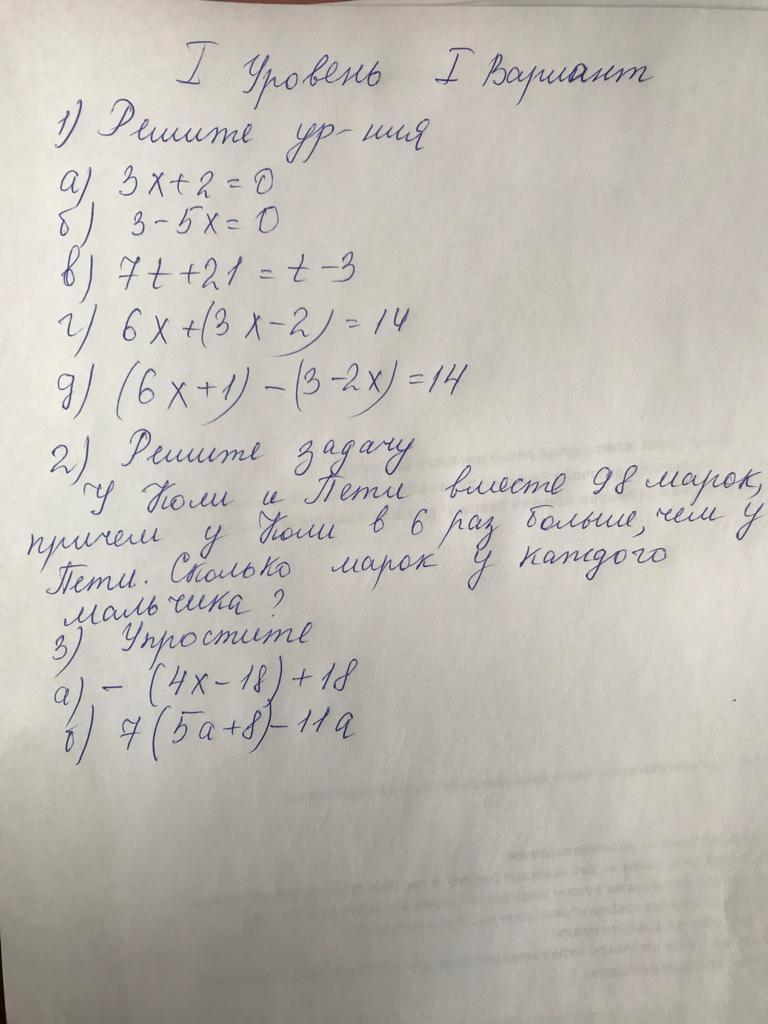 I Уровень I Вариант
1) Решите ур-ния
а) 3x+2=0
б) 3-5x=0
в) 7t+21=t-3
г) 6x+(3x-2)=14
д) (6x+1)-(3-2x)=14
2) Решите задачу
У Коли и Пети вместе 98 марок,
причем у Коли в 6 раз больше, чем у
Пети. Сколько марок у каждого
мальчика?
3) Упростите
а) - (4x-18)+18
б) 7(5a+8)-11a